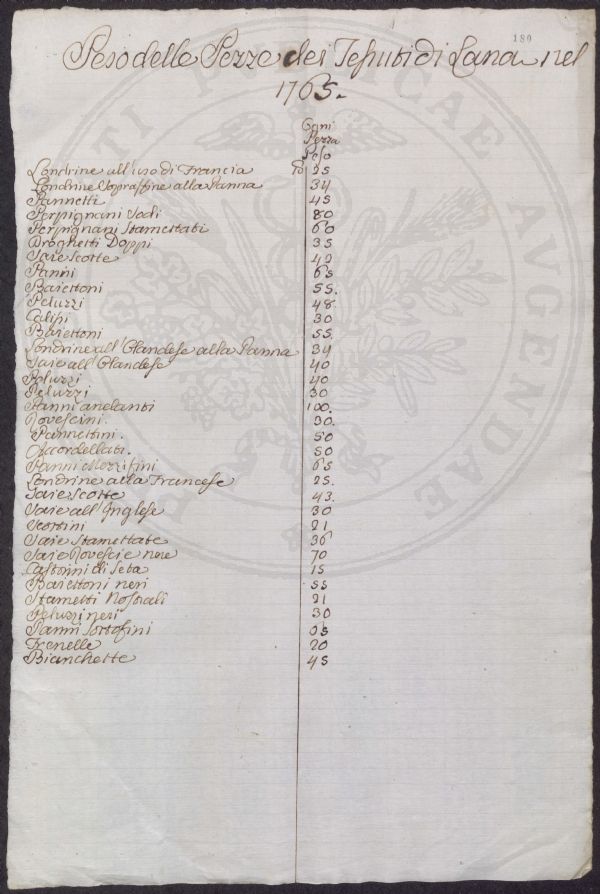 180
Peso delle Pezze dei Tessuti di Lana nel
1765.
Ogni
Pezza
Peso
Londrine all'uso di Francia 25
Londrine Soprafine alla Panna 34
Pannetti 45
Perpignani Sodi 80
Perpignani Stamettati 60
Droghetti Doppi 35
Saie Scotte 42
Panni 65
Baiettoni 55.
Peluzzi 48.
30
Baiettoni 55.
Londrine all'Olandese alla Panna 34
Saie all'Olandese 40
Peluzzi 40
Peluzzi 30
Panni 100.
Rovescini. 30.
Pannettini. 50
Accordellati. 50
Panni Mezzifini 65
Londrine alla Francese 25.
Saie Scotte 43.
Saie all'Inglese 30
Scottini 21
Saie Stamettate 36
Saie Rovescie nere 70
Castorini di Seta 15
Baiettoni neri 55
Stametti Nostrali 21
Peluzzi neri 30
Panni Sottofini
Frenelle 20
Bianchette 45